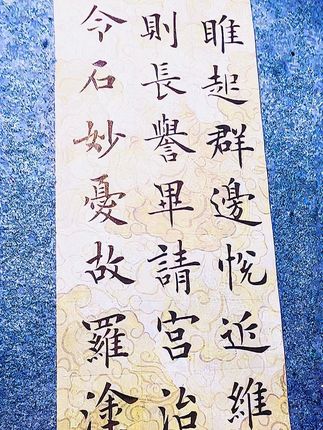 睢起群邊悅近維
則長譽畢請宮治
令石妙憂故羅塗